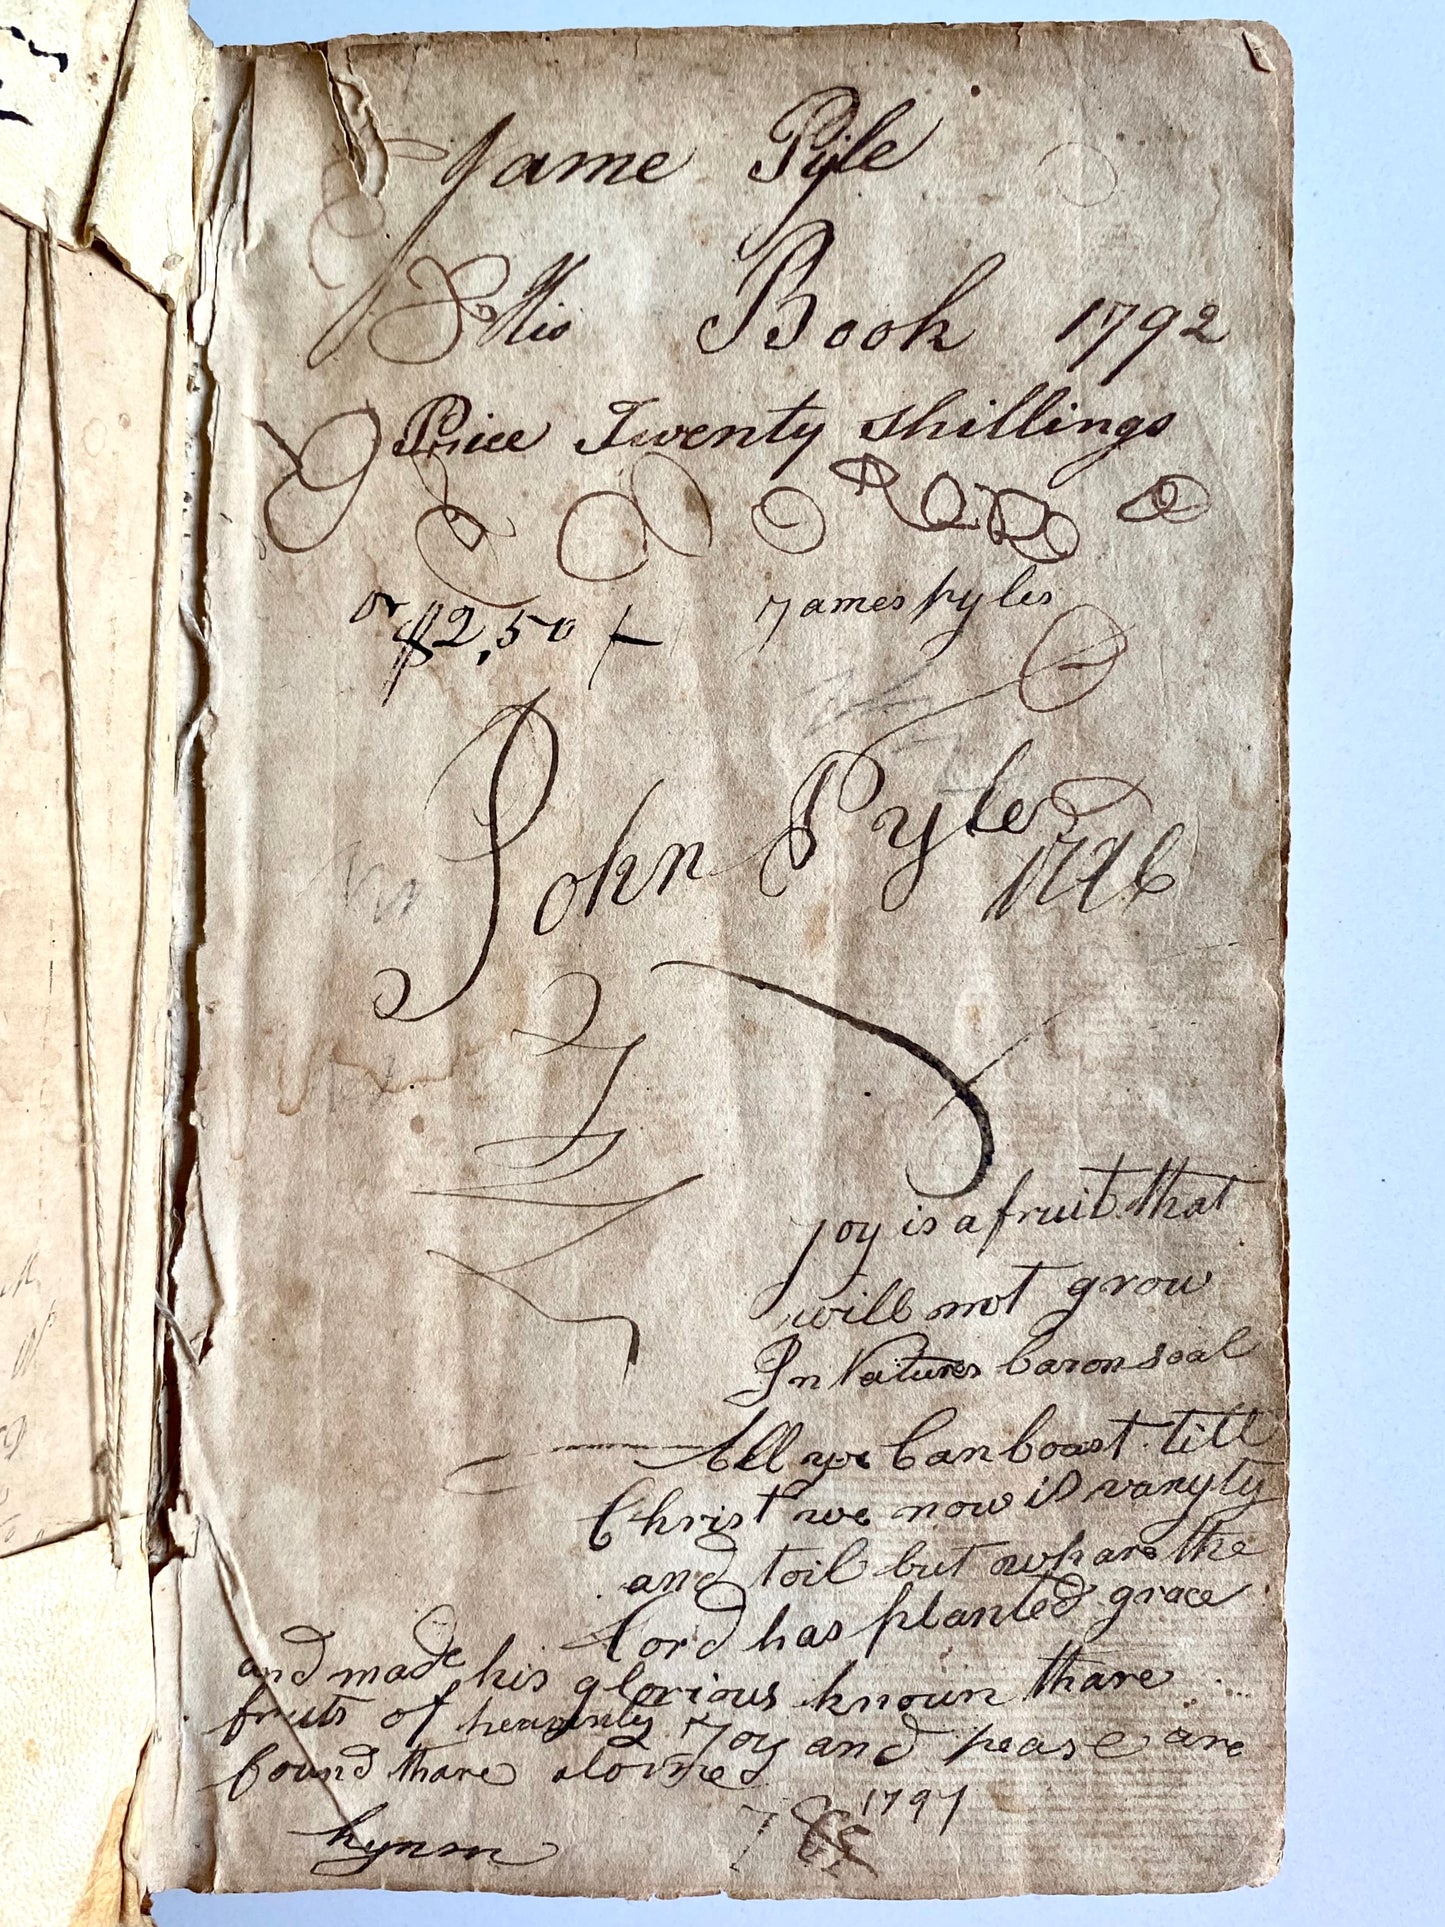 Jame Pyle
His Book 1792
Price Twenty shillings
or $2,50
James pyles
John Pyle
1796
Joy is a fruit that
will not grow
In Natures baron soal
All we Can boast till
Christ we now is vanyty
and toil but whare the
lord has planted grace
and made his glorious known thare
fruts of heavenly Joy and pease are
found thare alone
1797
hymn